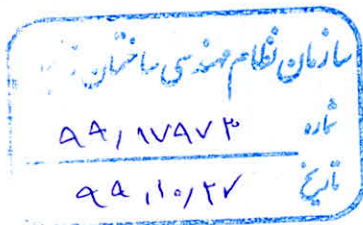 سازمان نظام مهندسی ساختمان
شماره ۹۹/۱۷۹۷۳
تاریخ ۹۹/۱۰/۲۷